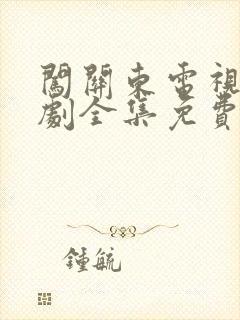 闖關東電視
劇全集免費
鍾毓